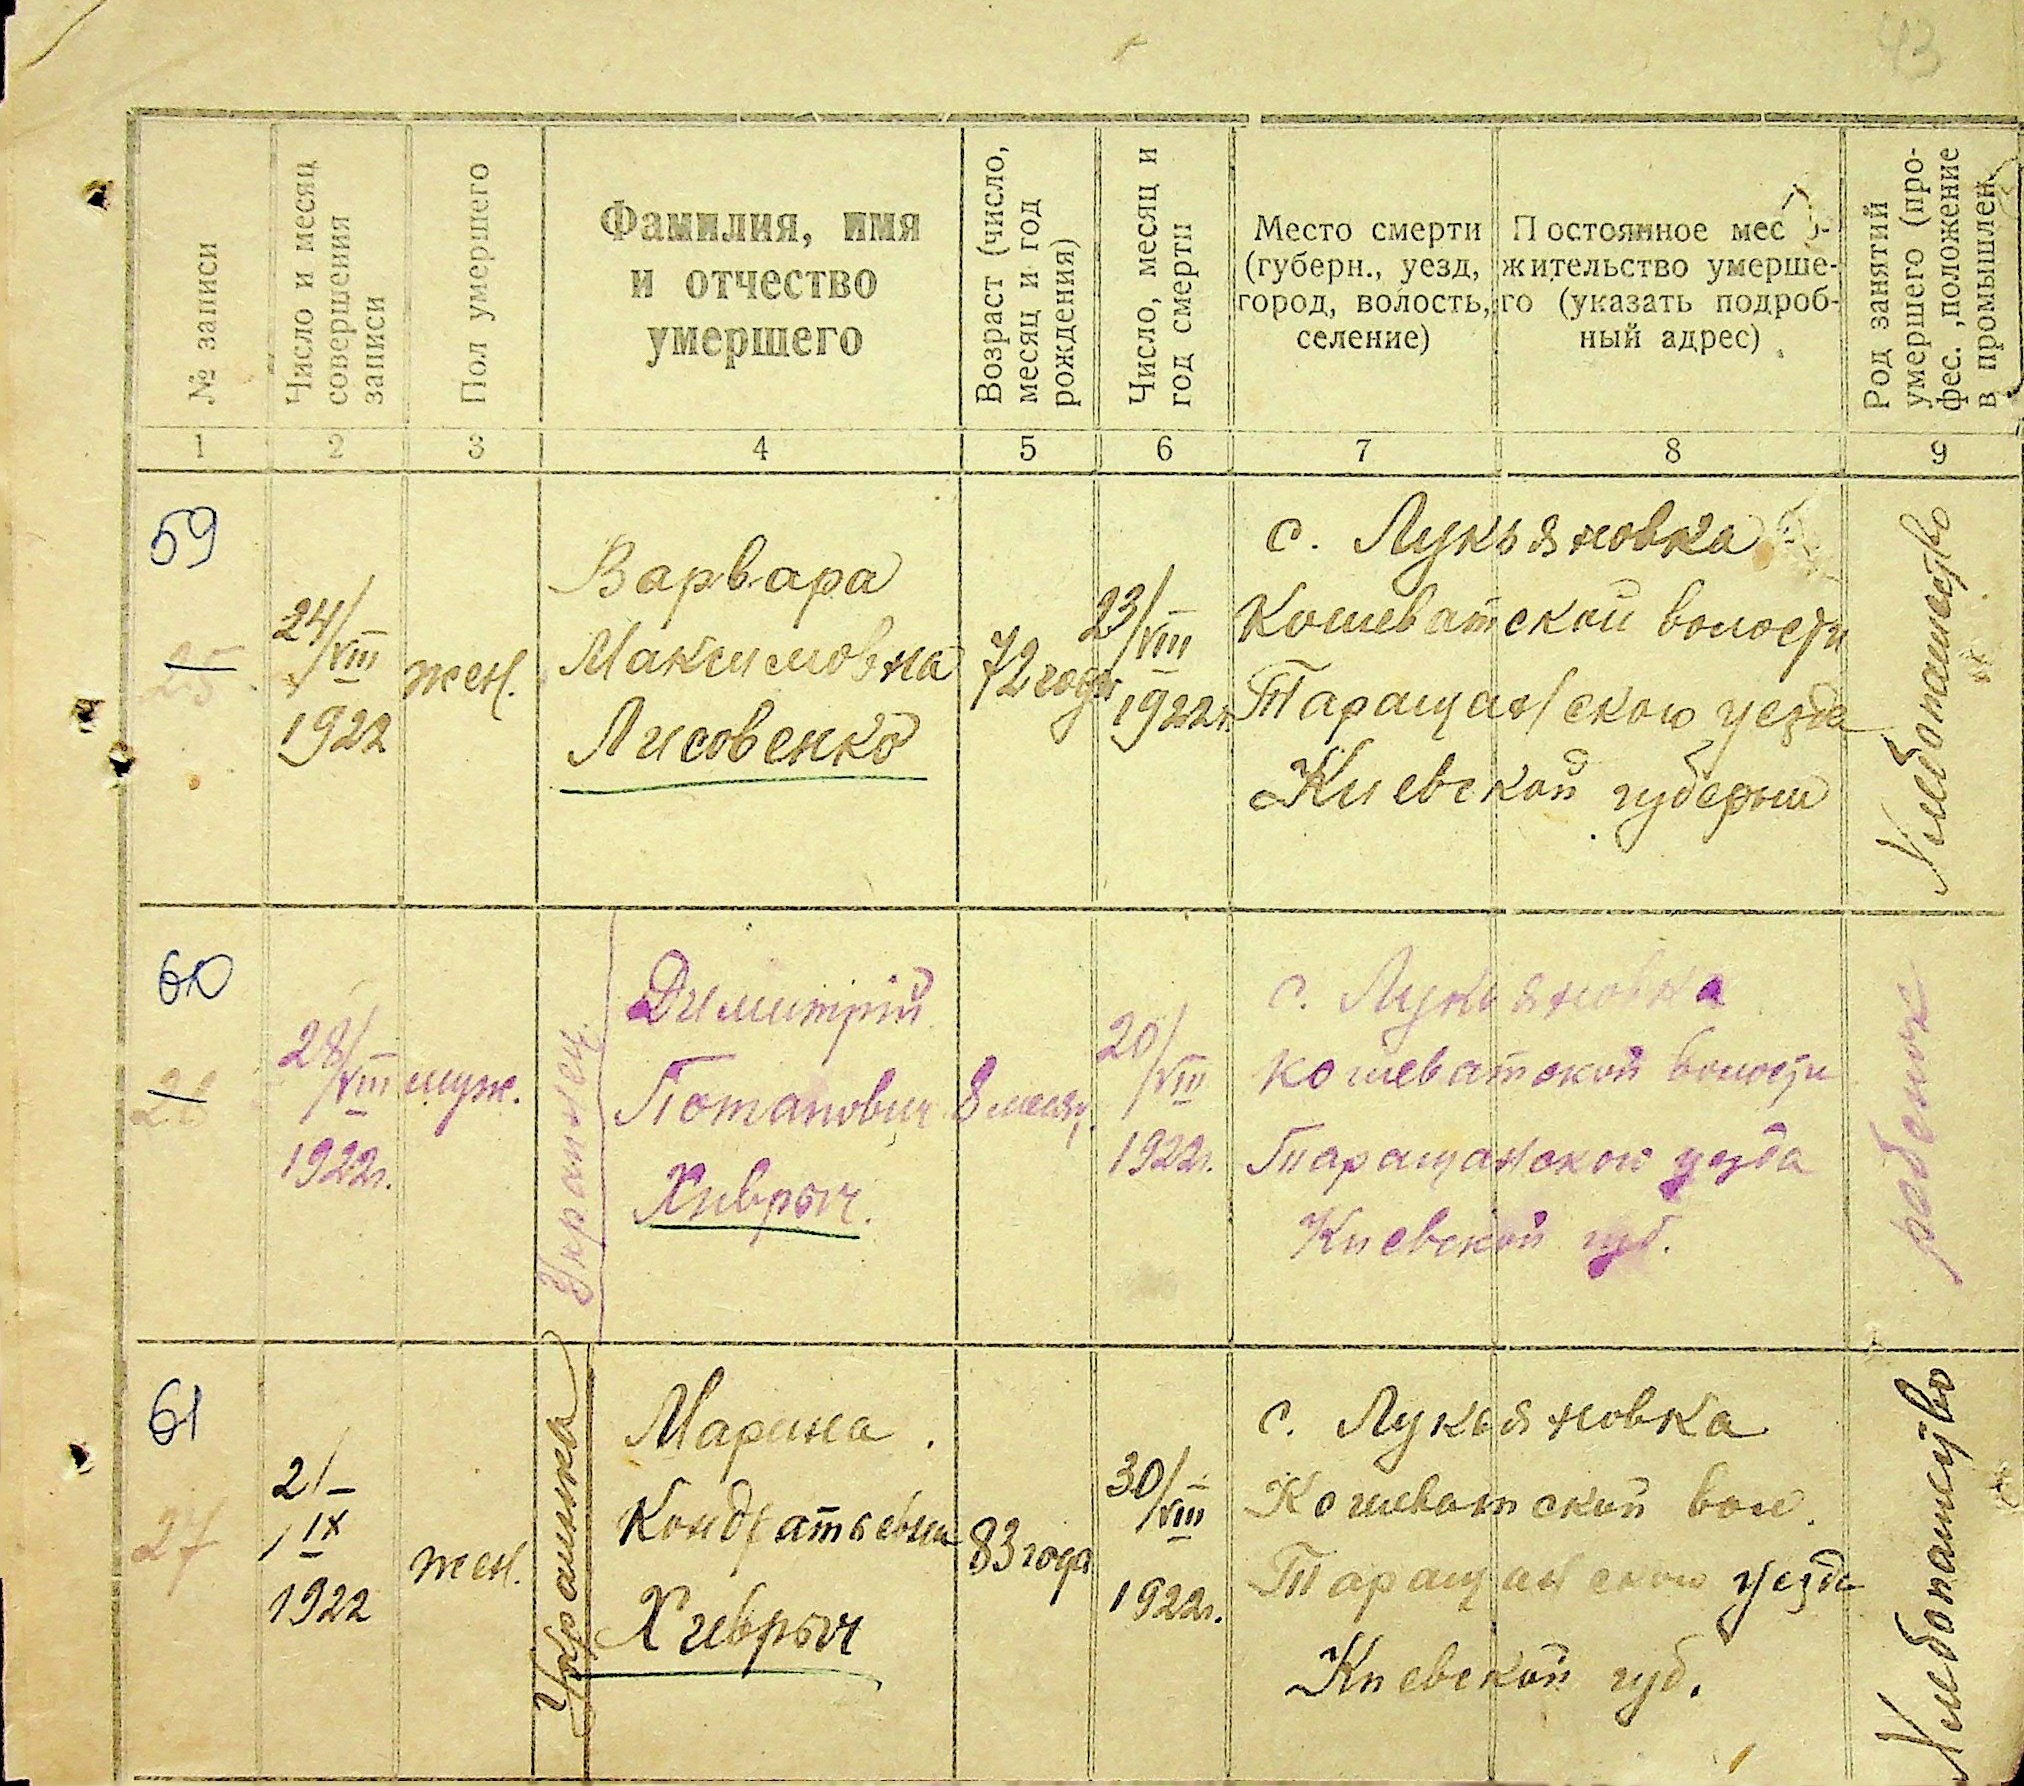 43
№ записи
Число и месяц
совершения
записи
Пол умершего
Фамилия, имя
и отчество
умершего
Возраст (число,
месяц и год
рождения)
Число, месяц и
год смерти
Место смерти
(губерн., уезд,
город, волость,
селение)
Постоянное мес
жительство умерше-
го (указать подроб-
ный адрес)
Род занятий
умершего (про-
фес. ,положение
в промышлен.
1 2 3 4 5 6 7 8 9
59
25
24/VIII
1922
жен.
Варвара
Максимовна
Лисовенко
72 года
23/VIII
1922г.
с. Лукьяновка
Кошеватской волости
Таращанского уезда
Киевской губернии
Хлебопашество
60
26
28/VIII
1922г.
муж.
Украинец.
Димитрий
Потапович
Хиврыч.
8 месяц.
20/VIII
1922г.
с. Лукьяновка
Кошеватской волости
Таращанского уезда
Киевской губ.
ребенок
61
27
2/IX
1922
жен.
Украинка
Марина.
Кондратьевна
Хиврыч
83 года
30/VIII
1922г.
с. Лукьяновка
Кошеватской вол.
Таращанского уезда
Киевской губ.
Хлебопашество